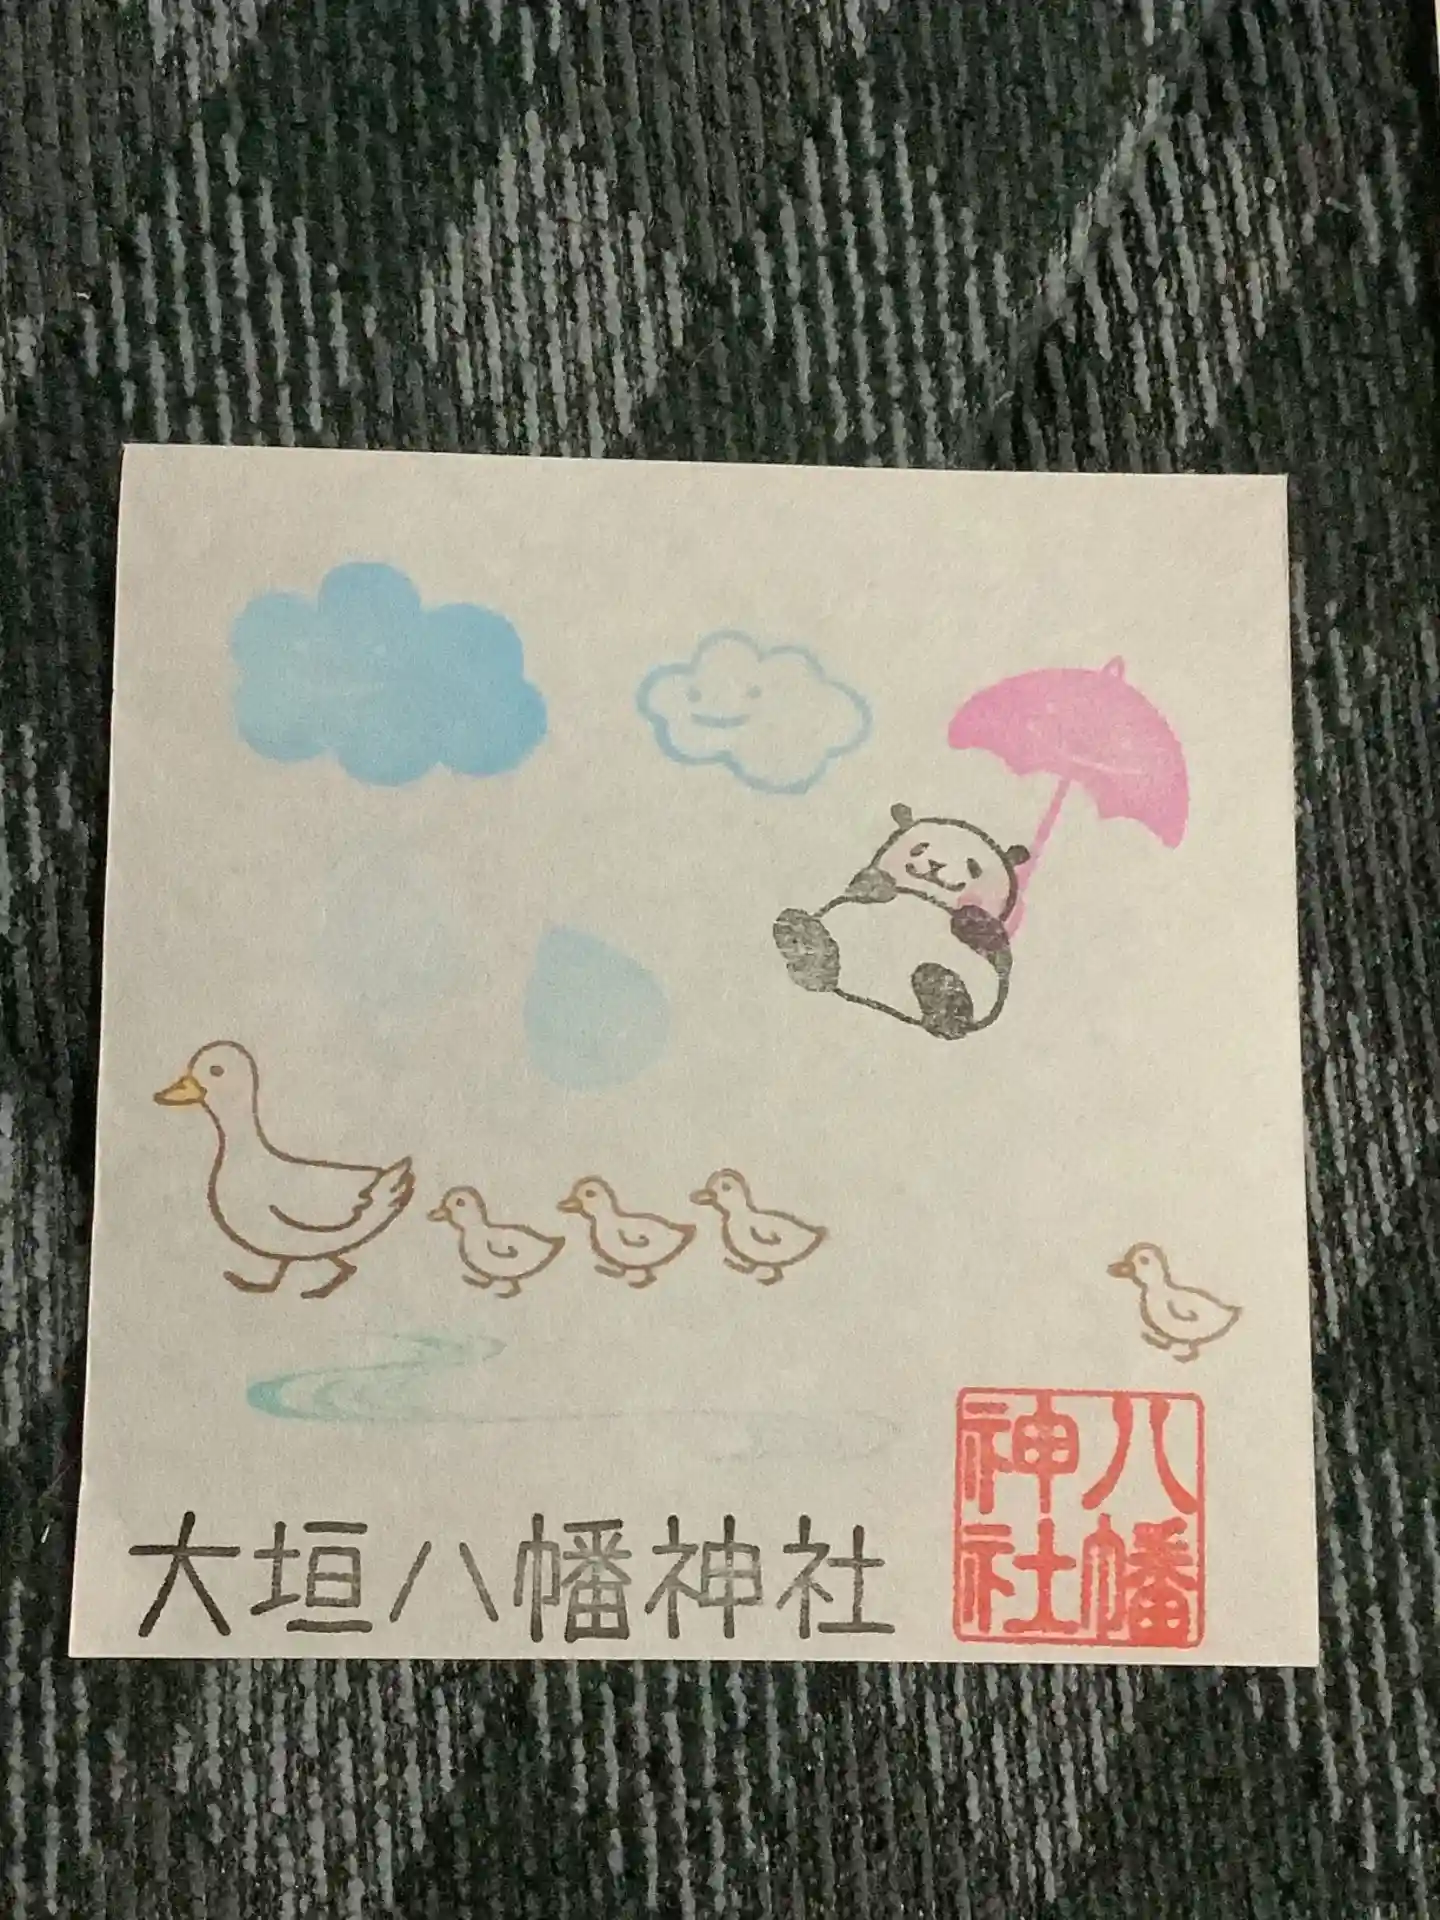 大垣八幡神社
八幡
神社